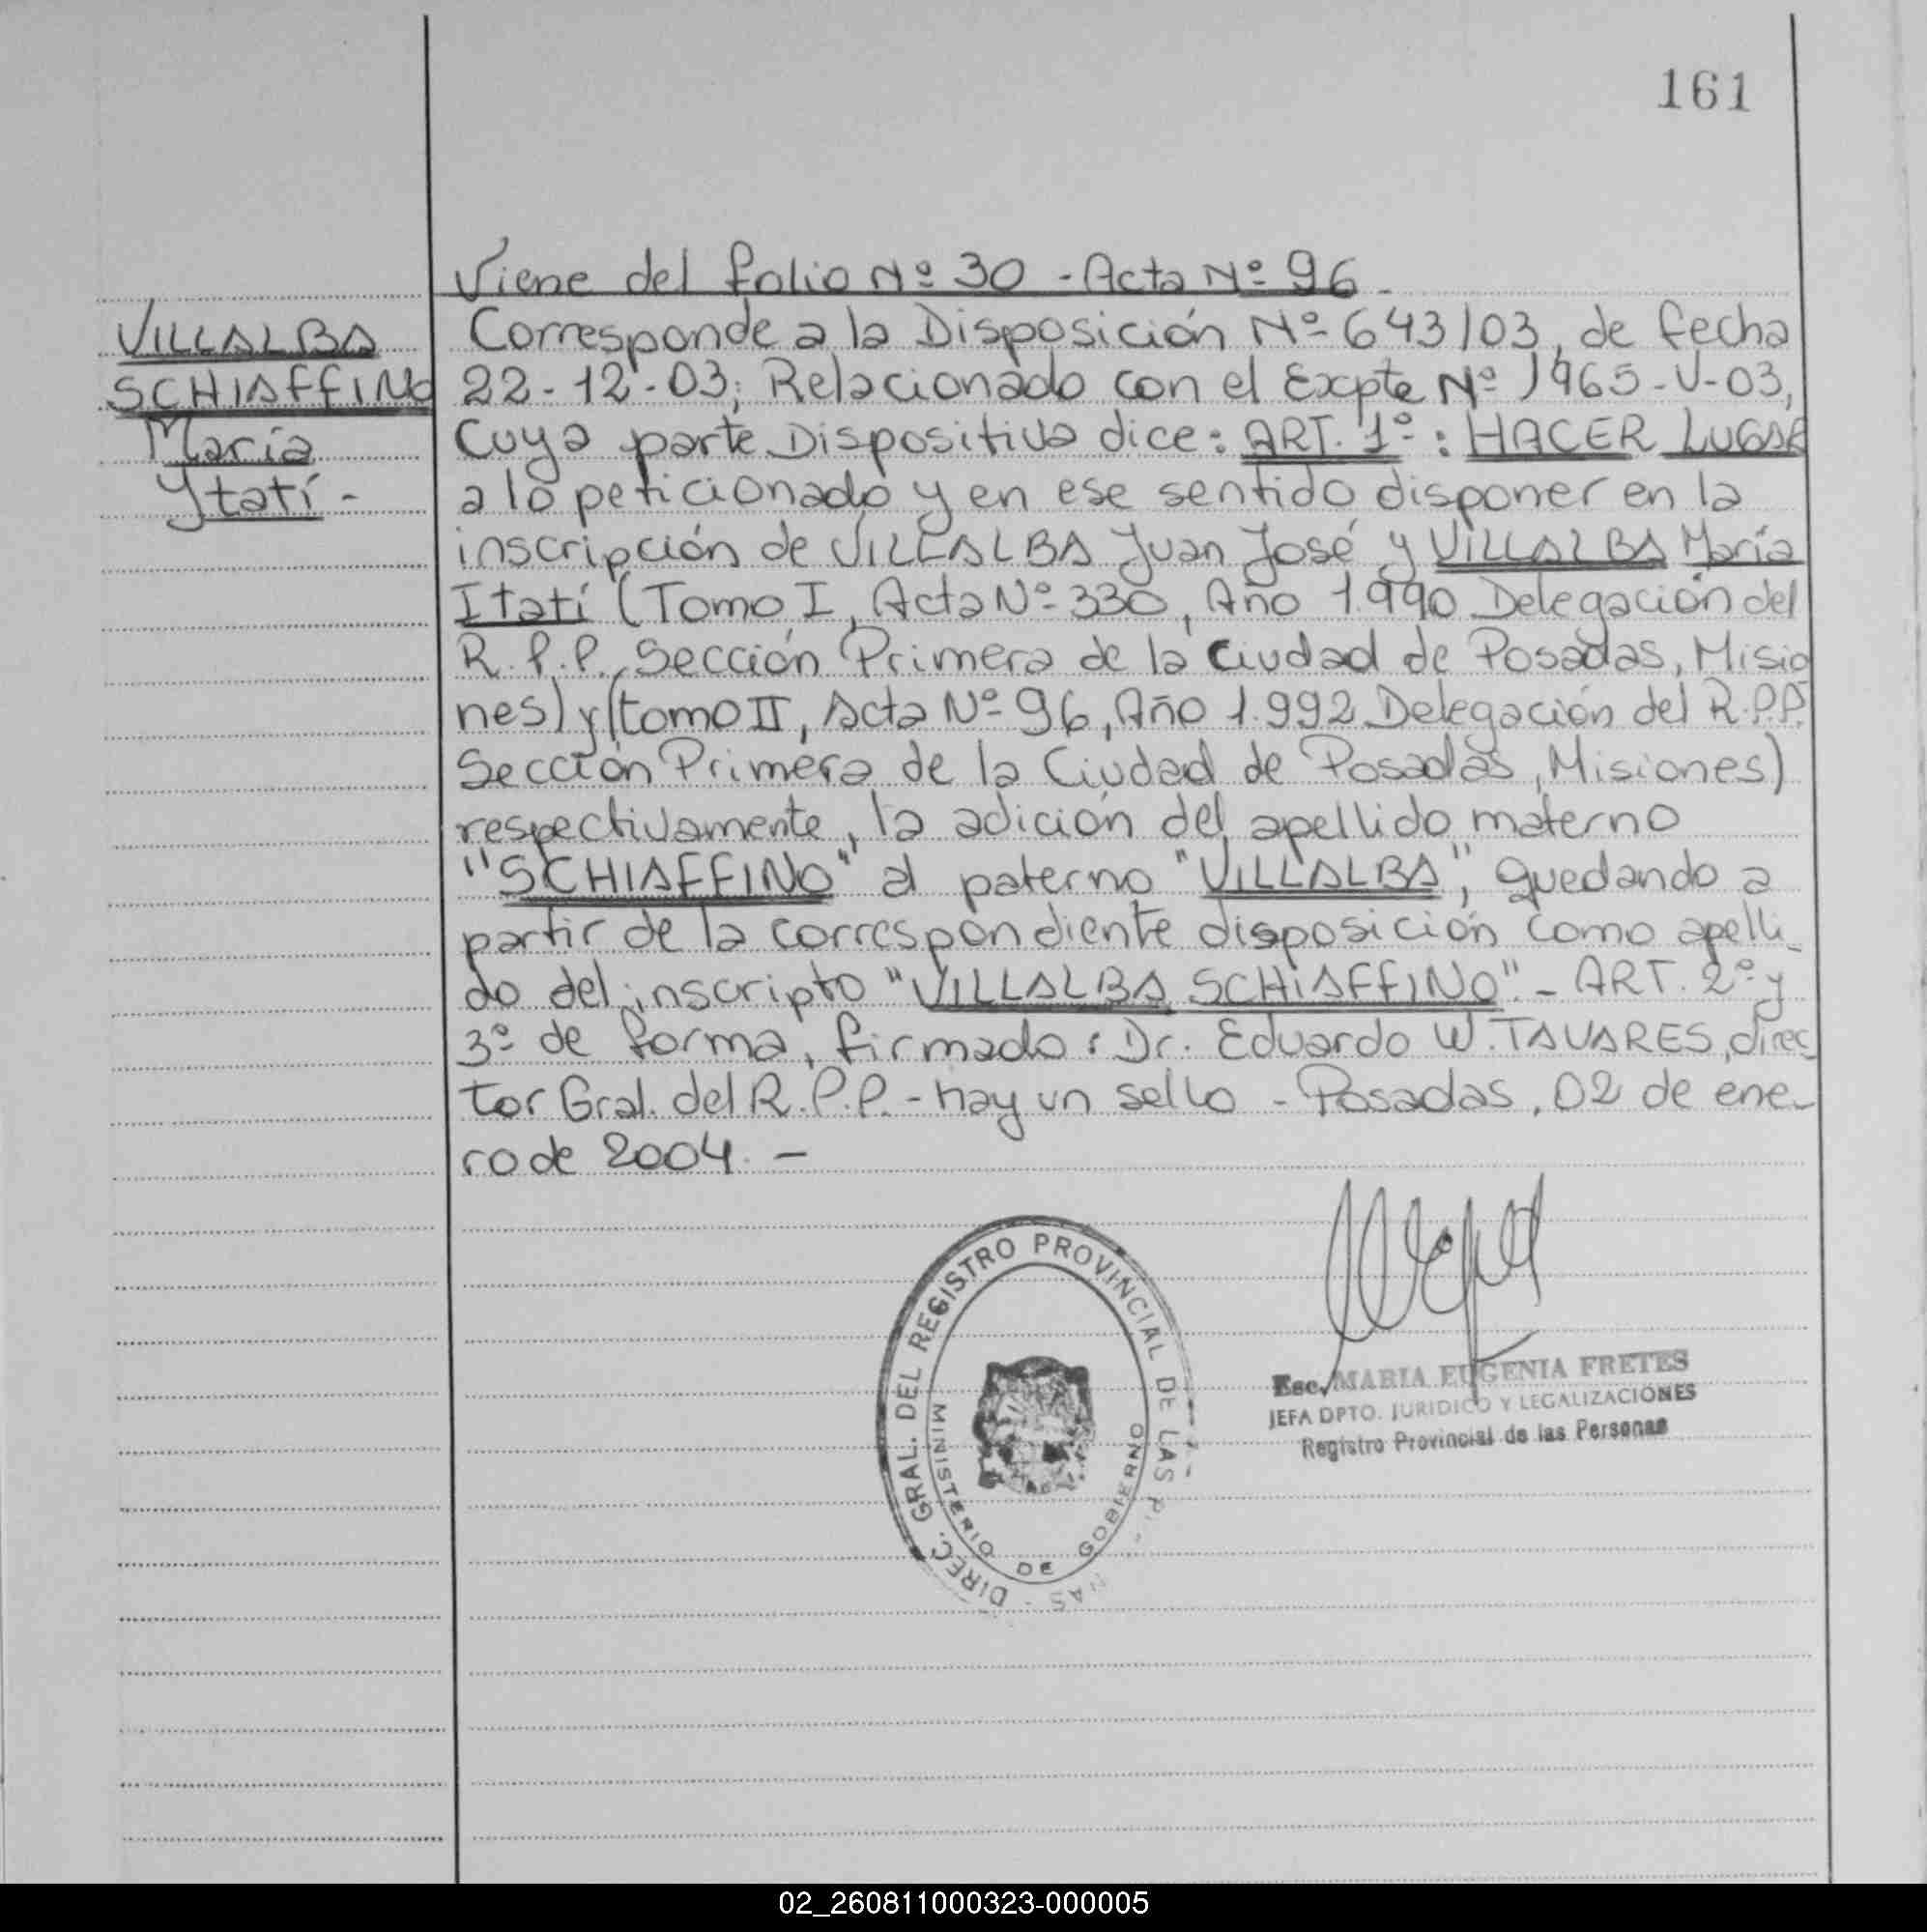 161
Viene del folio Nº 30 - Acta Nº 96 -
VILLALBA
SCHIAFFINO
María
Ytatí -
Corresponde a la Disposición Nº 643/03, de fecha
22-12-03; Relacionado con el Expte Nº 1965-V-03,
Cuya parte Dispositiva dice: ART. 1º: HACER LUGAR
a lo peticionado y en ese sentido disponer en la
inscripción de VILLALBA Juan José y VILLALBA María
Itatí (Tomo I, Acta Nº 330, Año 1.990 Delegación del
R.P.P. Sección Primera de la Ciudad de Posadas, Misio
nes) y (tomo II, Acta Nº 96, Año 1.992 Delegación del R.P.P.
Sección Primera de la Ciudad de Posadas, Misiones)
respectivamente, la adición del apellido materno
"SCHIAFFINO" al paterno "VILLALBA", quedando a
partir de la correspondiente disposición como apelli-
do del inscripto "VILLALBA SCHIAFFINO". - ART. 2º y
3º de forma, firmado: Dr. Eduardo W. TAVARES, direc
tor Gral. del R.P.P. - hay un sello - Posadas, 02 de ene-
ro de 2004. -
DIREC. GRAL. DEL REGISTRO PROVINCIAL DE LAS
MINISTERIO DE GOBIERNO
Esc. MARIA EUGENIA FRETES
JEFA DPTO. JURIDICO Y LEGALIZACIONES
Registro Provincial de las Personas
02_260811000323-000005